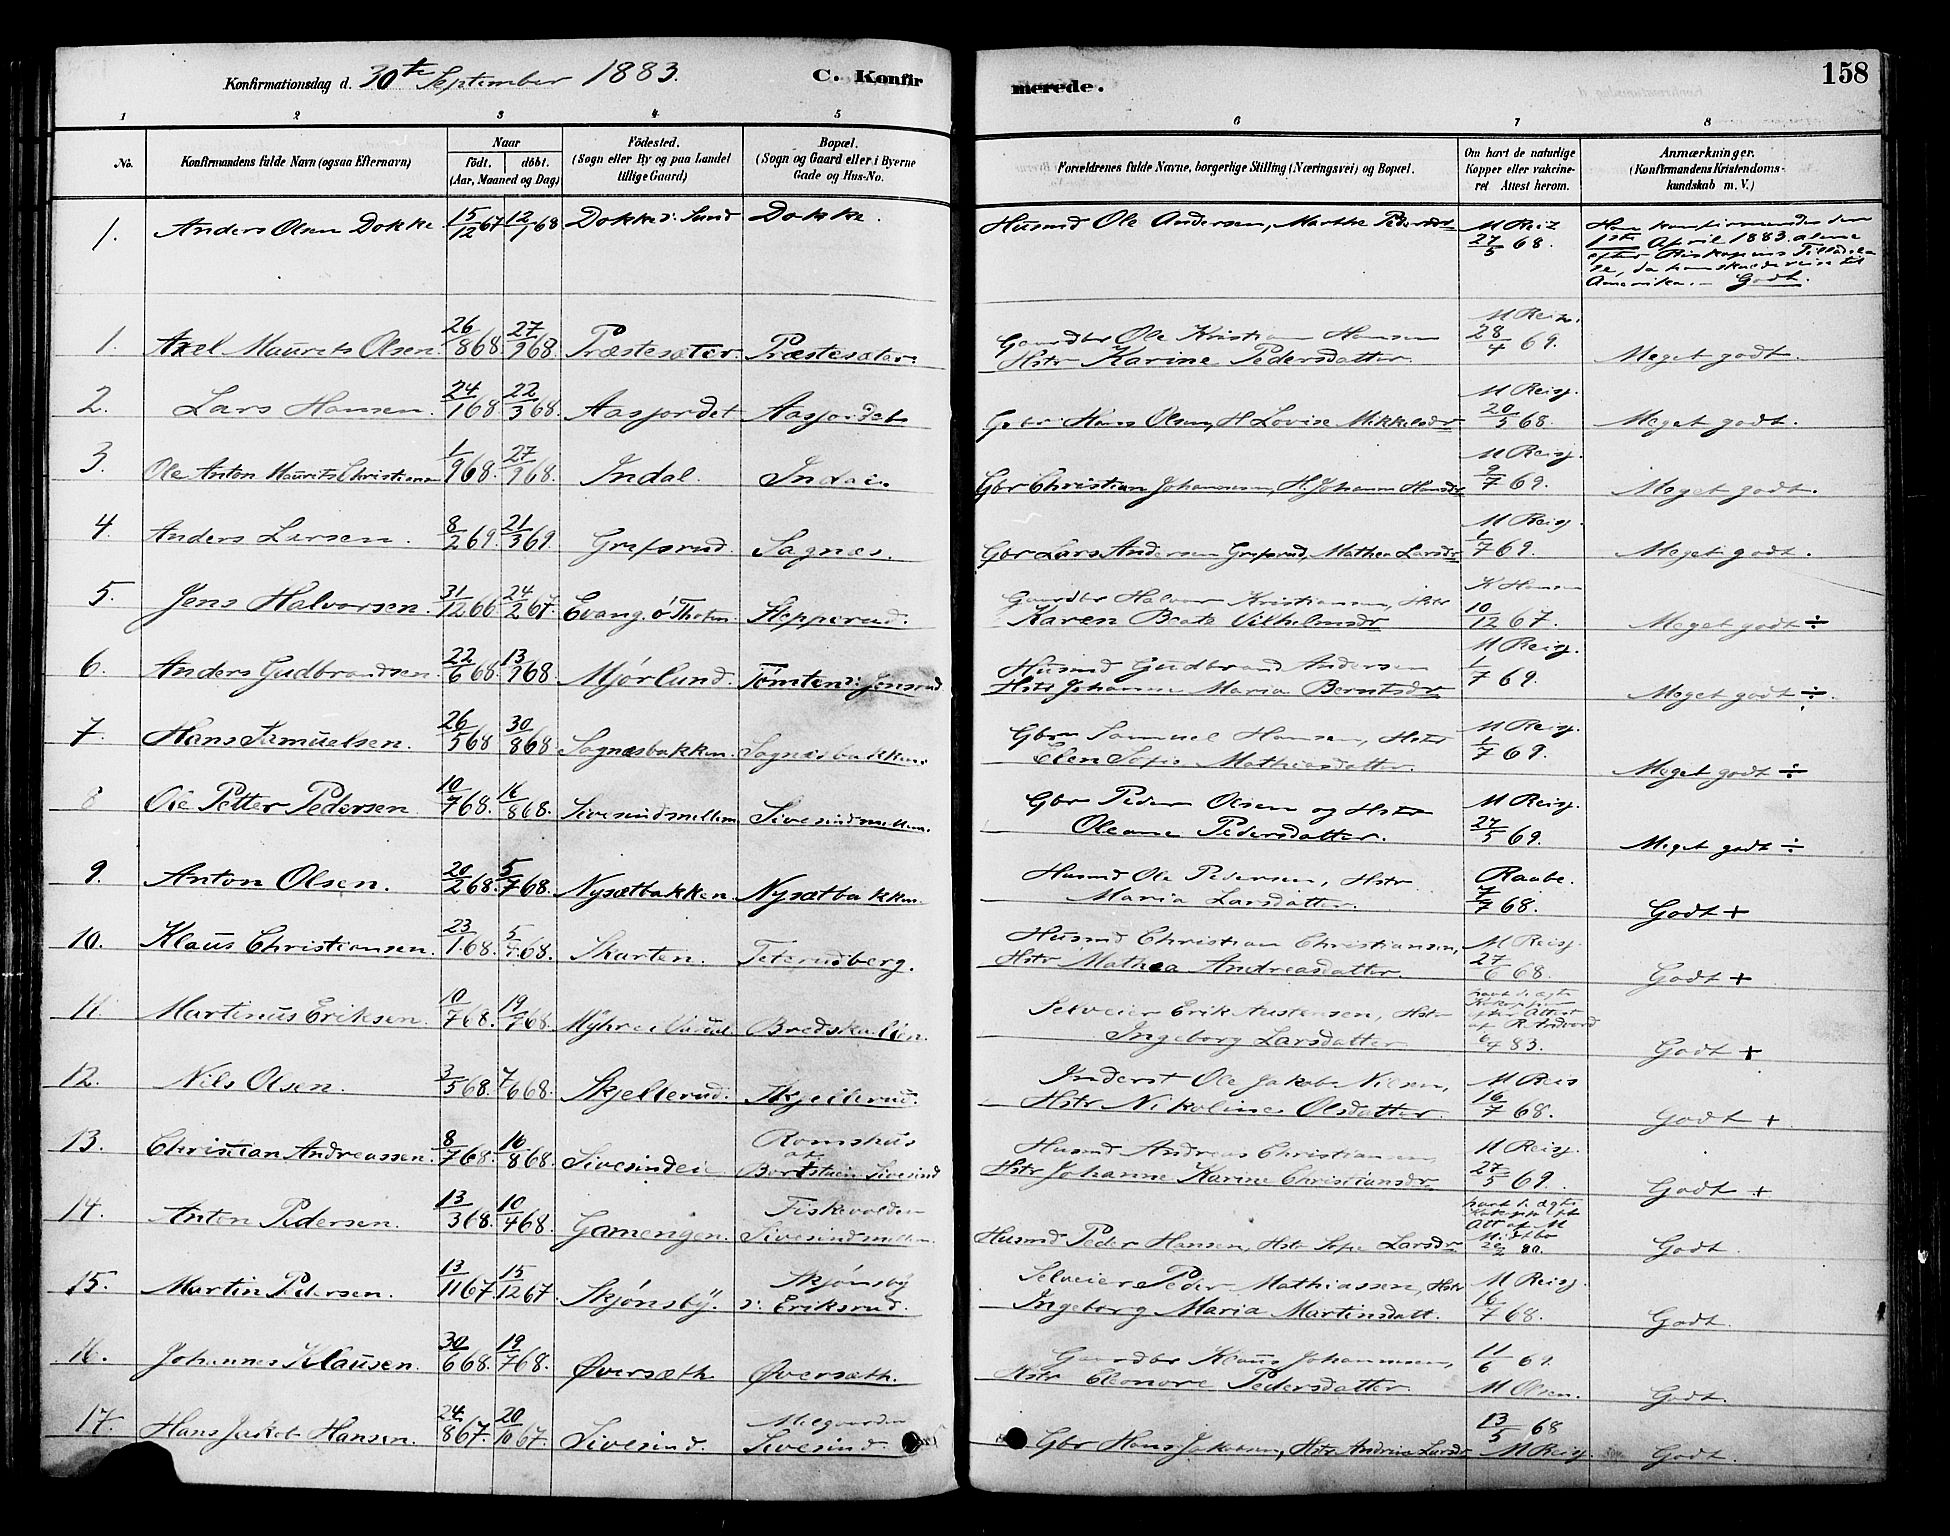 Konfirmationsdag d. 30te September 1883. C. Konfirmerede. 158
1 2 3 4 5 6 7 8
No. Konfirmandens fulde Navn (ogsaa Efternavn) Naar födt. döbt. (Aar, Maaned og Dag) Födested. (Sogn eller By og paa Landet tillige Gaard) Bopæl. (Sogn og Gaard eller i Byerne Gade og Hus-No. Forældrenes fulde Navne, borgerlige Stilling (Næringsvei) og Bopæl. Om havt de naturlige Kopper eller vakcineret Attest herom. Anmærkninger. (Konfirmandens Kristendomskundskab m. V.)
1. Anders Olsen Dokke 15/12 67 12/1 68 Dokke i Lund Dokke. Husmd Ole Andersen, Marthe Pedersdtr M Reiz 27/5 68. Han konfirmeredes den 1ste April 1883 alene efter Biskopens Tilladelse, da han skulde reise til Amerika. – Godt.
1. Axel Maurits Olsen 26/8 68. 27/9 68. Præstesæter. Præstesæter. Gaardbr Ole Kristian Hansen Hstr Karine Pedersdatter. M Reiz. 28/4 69. Meget godt.
2. Lars Hansen. 24/1 68. 22/3 68. Aasjordet Aasjordet Gbr Hans Olsen, H Lovise Mikkelsdr M Reisz. 20/5 68. Meget godt.
3. Ole Anton Maurits Christiansen 1/9 68. 27/9 68. Indal. Indal. Gbr Christian Johannesen, H. Johanne Hansdr M Reisz. 9/7 69. Meget godt.
4. Anders Larsen. 8/2 69. 21/3 69. Grefsrud. Sagnæs. Gbr Lars Andersen Grefsrud, Mathea Larsdr M Reisz. 1/7 69. Meget godt.
5. Jens Halvorsen. 31/12 66 24/2 67. Evang. Ö Thoten Klepperud. Gaardbr Halvor Kristiansen, Hstr Karen Beate Vilhelmsdr K Hansen 10/12 67. Meget godt ÷
6. Anders Gudbrandsen. 22/6 68. 13/9 68. Mjörlund. Tömten i Jensrud Husmd Gudbrand Andersen Hstr Johanne Maria Berntsdr M Reisz. 1/7 69. Meget godt ÷
7. Hans Samuelsen. 26/5 68 30/8 68. Sagnæsbakken. Sagnæsbakken. Gbr Samuel Hansen, Hstr Elen Sofie Mathiasdatter. M Reisz. 1/7 69. Meget godt ÷
8 Ole Petter Pedersen. 10/7 68. 16/8 68. Sivesindmellem Sivesindmellem. Gbr Peder Olsen og Hstr Oleane Pedersdatter. M Reisz. 27/5 69. Meget godt ÷
9. Anton Olsen. 20/2 68. 5/7 68. Nysætbakken. Nysætbakken. Husmd Ole Pedersen, Hstr Maria Larsdatter. Raabe. 7/7 68. Godt +
10. Klaus Christiansen. 23/1 68. 5/ 68. Skarten. Teterudberg. Husmd Christian Christiansen, Hstr Mathea Andreasdatter. M Reisz. 27/6 68. Godt +
11. Martinus Eriksen. 10/7 68. 19/7 68. Myhre Bredskallien. Selveier Erik Austensen, Hstr Ingeborg Larsdatter havt de ægte Kokopper efter Attest af R. 6/4 83. Godt +
12. Nils Olsen. 3/5 68. 7/6 68. Skjellerud. Skjellerud. Inderst Ole Jakob Nilsen, Hstr Nikoline Olsdatter. M Reis 16/7 68. Godt +
13. Christian Andreassen. 8/7 68. 16/8 68. Sivesindeie Romshus Sivesind Husmd Andreas Christiansen, Hstr Johanne Karine Christiansdr. M Reisz. 27/5 69. Godt +
14. Anton Pedersen. 13/3 68. 10/4 68. Gamengen. Fiskevolden Sivesindmellem. Husmd Peder Hansen, Hstr Sofie Larsdr havt de ægte Att af M Midtbö 20/2 80. Godt.
15. Martin Pedersen. 13/11 67 15/12 67. Skjönsby. Skjönsby i Eriksrud. Selveier Peder Mathiassen, Hstr Ingeborg Maria Martinsdatt. M Reisz. 16/7 68. Godt.
16. Johannes Klausen. 30/6 68. 19/7 68. Øversæth. Øversæth. Gaardbr Klaus Johannesen, Hstr Eleonore Pedersdatter. 11/6 69. M Olsen. Godt.
17. Hans Jakob Hansen. 24/8 67. 20/10 67. Sivesind. Sivesind. Gbr Hans Jakobsen, Hstr Andrine Larsdr 13/5 68 M Reisz. Godt.